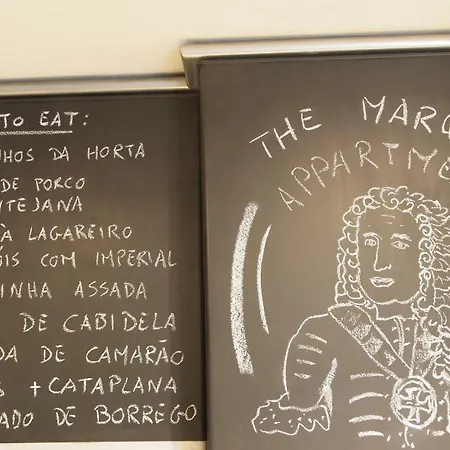 TO EAT:
NHOS DA HORTA
DE PORCO
NTEJANA
À LAGAREIRO
OIS COM IMPERIAL
INHA ASSADA
DE CABIDELA
DA DE CAMARÃO
S + CATAPLANA
ADO DE BORREGO
THE MARQ
APPARTME